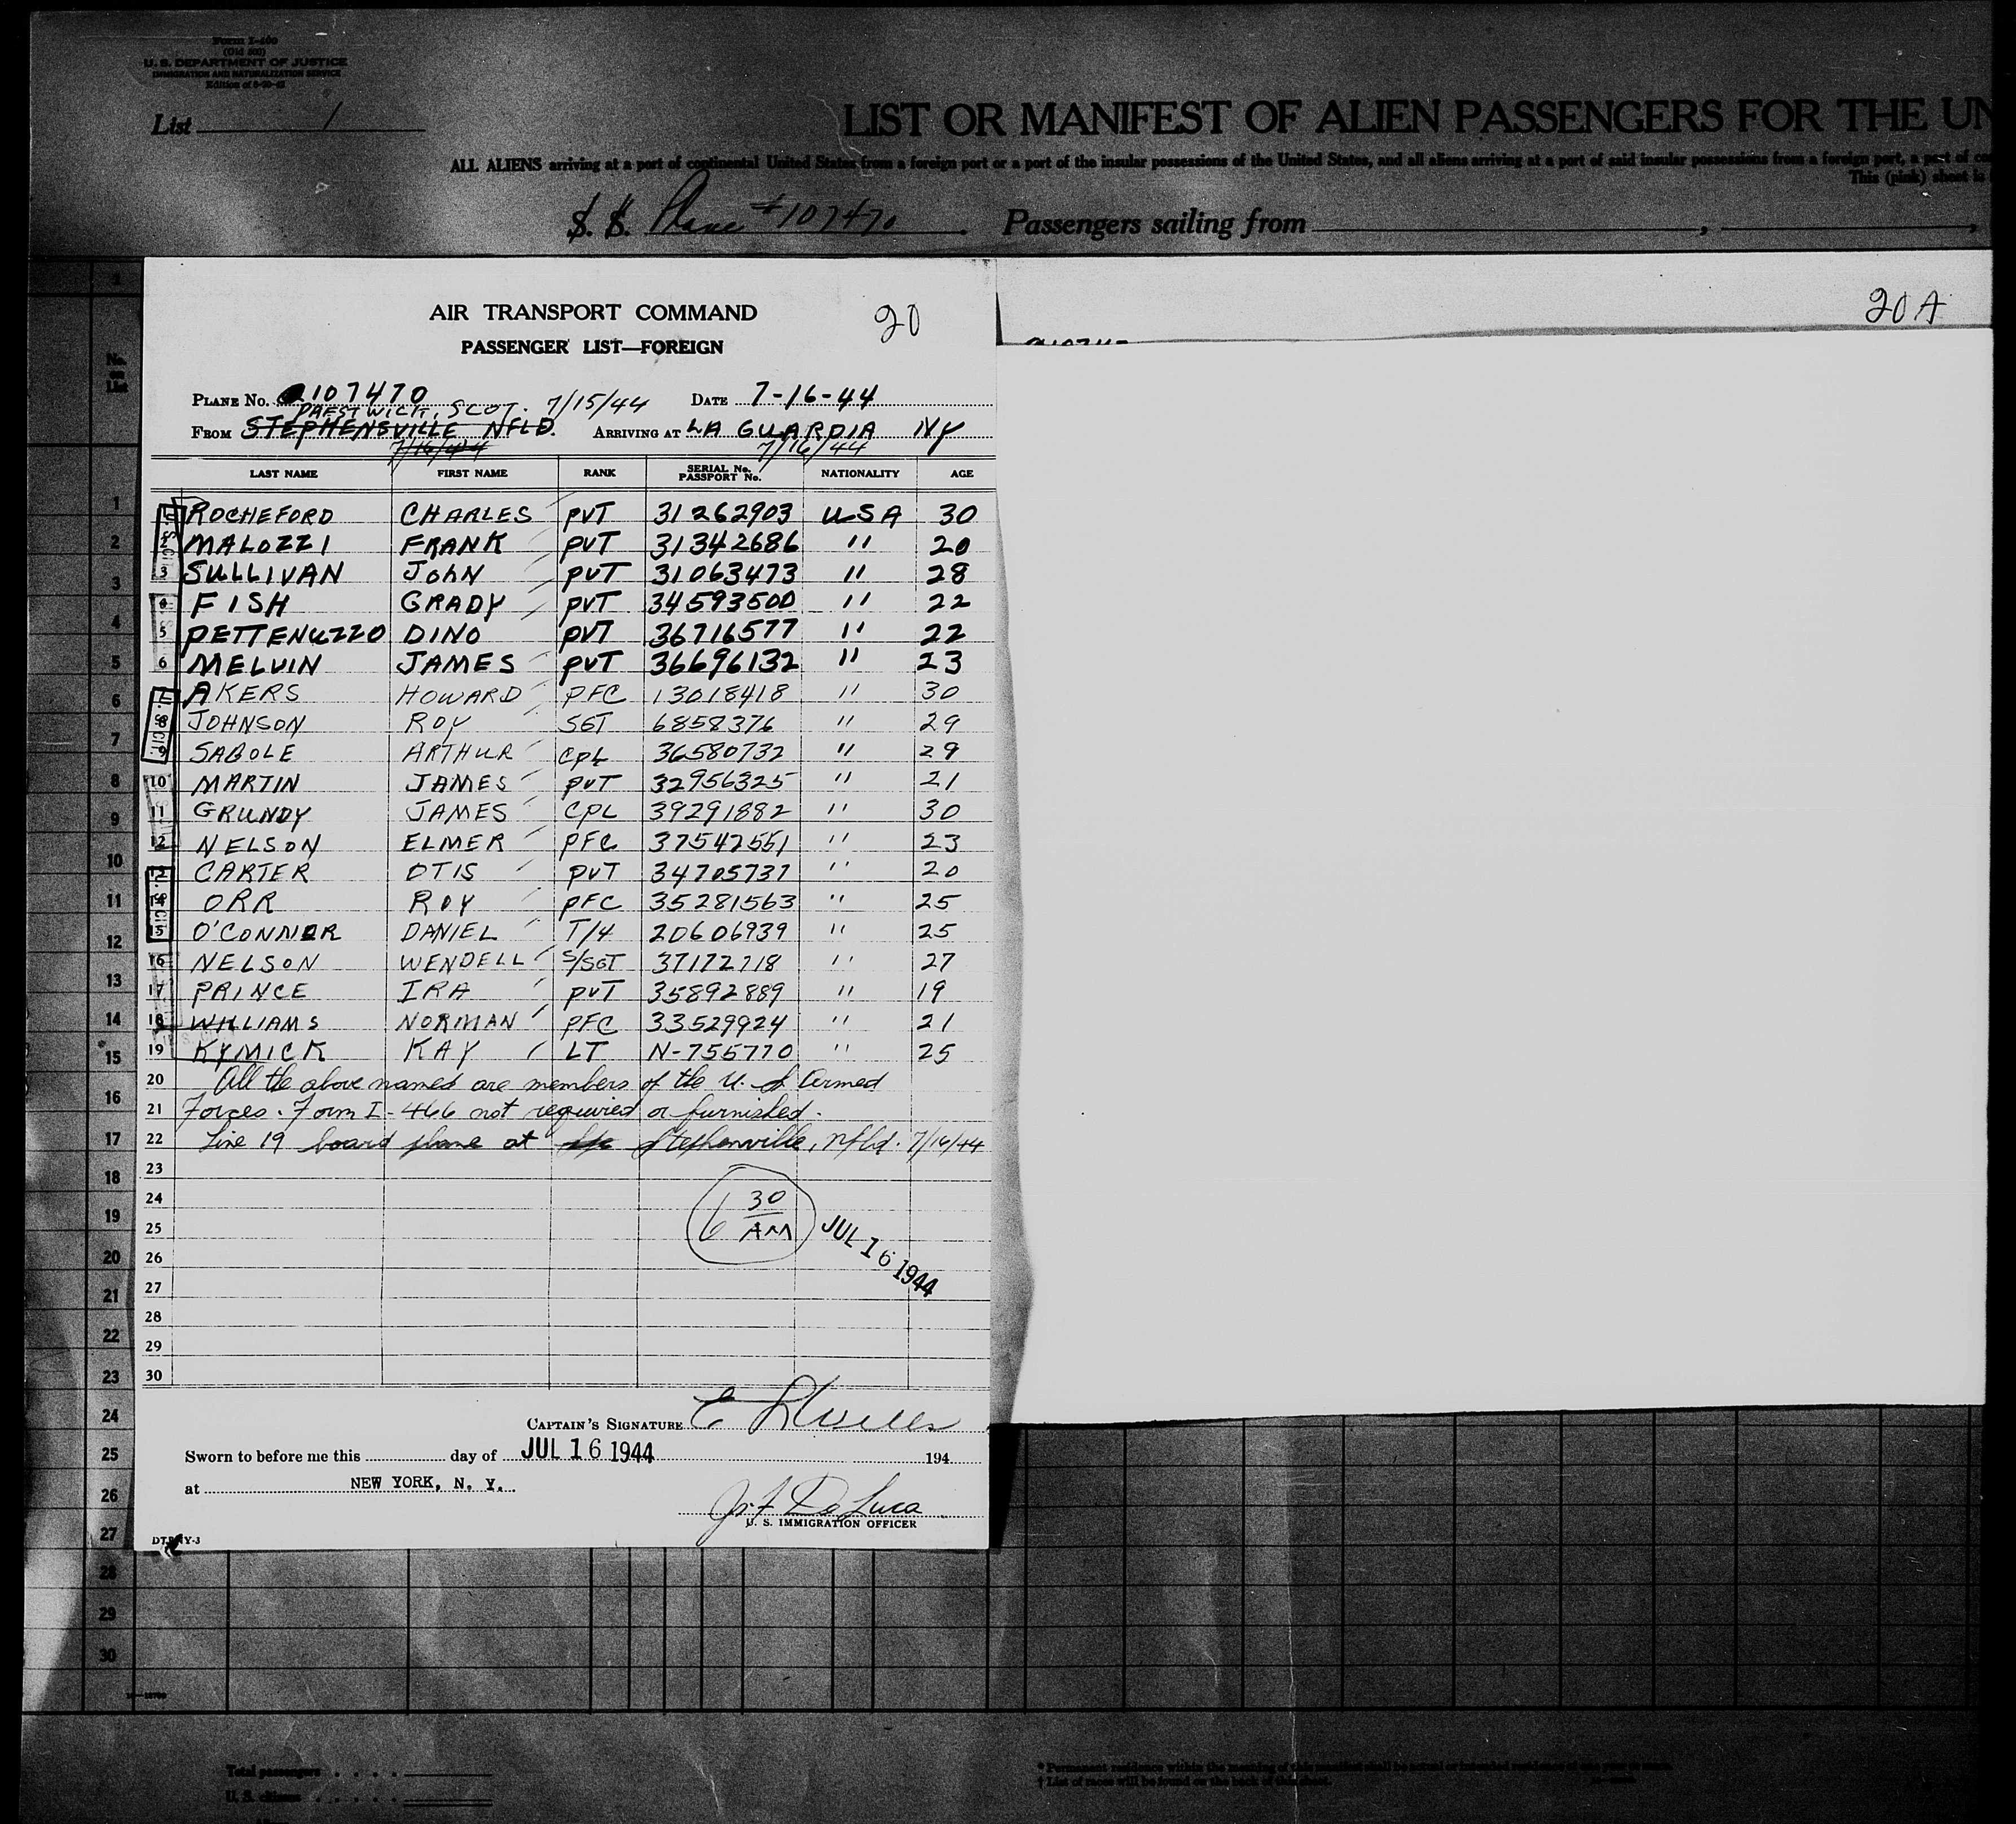 Form I-400
(Old 500)
U. S. DEPARTMENT OF JUSTICE
IMMIGRATION AND NATURALIZATION SERVICE
List 1
LIST OR MANIFEST OF ALIEN PASSENGERS FOR THE UN
ALL ALIENS arriving at a port of continental United States from a foreign port or a port of the insular possessions of the United States, and all aliens arriving at a port of said insular possessions from a foreign port, a port of co
This (pink) sheet is
S. S. Plane #107470 Passengers sailing from
AIR TRANSPORT COMMAND
20
PASSENGER LIST—FOREIGN
20 A
PLANE NO. 107470 DATE 7-16-44
PRESTWICK, SCOT. 7/15/44
FROM STEPHENSVILLE NFLD. ARRIVING AT LA GUARDIA NY
7/16/44 7/16/44
LAST NAME FIRST NAME RANK SERIAL No. PASSPORT No. NATIONALITY AGE
1 ROCHEFORD CHARLES PVT 31262903 USA 30
2 MALOZZI FRANK PVT 31342686 " 20
3 SULLIVAN JOHN PVT 31063473 " 28
4 FISH GRADY PVT 34593500 " 22
5 PETTENUZZO DINO PVT 36716577 " 22
6 MELVIN JAMES PVT 36696132 " 23
7 AKERS HOWARD PFC 13018418 " 30
8 JOHNSON ROY SGT 6858376 " 29
9 SABOLE ARTHUR CPL 36580732 " 29
10 MARTIN JAMES PVT 32956325 " 21
11 GRUNDY JAMES CPL 39291882 " 30
12 NELSON ELMER PFC 37542551 " 23
13 CARTER OTIS PVT 34705737 " 20
14 ORR ROY PFC 35281563 " 25
15 O'CONNOR DANIEL T/4 20606939 " 25
16 NELSON WENDELL S/SGT 37172718 " 27
17 PRINCE IRA PVT 35892889 " 19
18 WILLIAMS NORMAN PFC 33529924 " 21
19 KYMICK KAY LT N-755770 " 25
20 All the above names are members of the U. S. Armed
21 Forces. Form I-466 not required or furnished.
22 Line 19 board plane at Stephenville, Nfld. 7/16/44
23
24
25
26
27
28
29
30
6 30 AM
JUL 16 1944
CAPTAIN'S SIGNATURE
Sworn to before me this day of JUL 16 1944 194
at NEW YORK, N. Y.
De Luca
U. S. IMMIGRATION OFFICER
1
2
3
4
5
6
7
8
9
10
11
12
13
14
15
16
17
18
19
20
21
22
23
24
25
26
27
28
29
30
Total passengers
U. S. citizens
* Permanent residence within the meaning of this manifest shall be actual or intended residence of one year or more.
† List of races will be found on the back of this sheet.